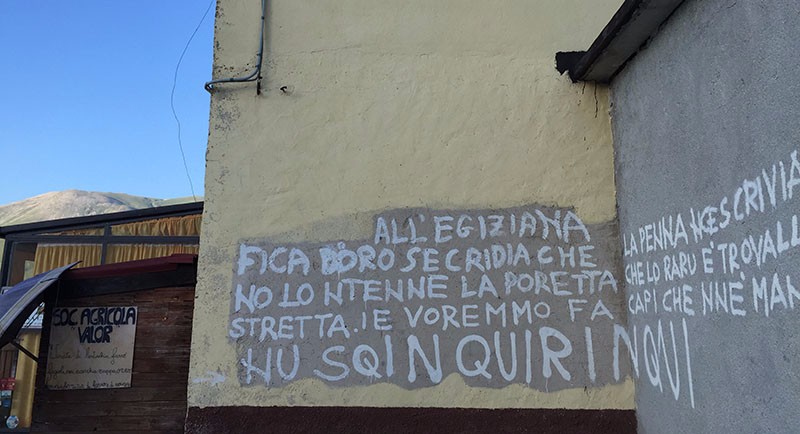 ALL'EGIZIANA
FICA DORO SE CRIDIA CHE
NO LO NTENNE LA PORETTA
STRETTA. IE VOREMMO FA
NU SQINQUIRINQUI
LA PENNA NCE SCRIVIA
CHE LO RARU È TROVALL
CAPI CHE NNÈ MAN
SOC AGRICOLA
VALOR